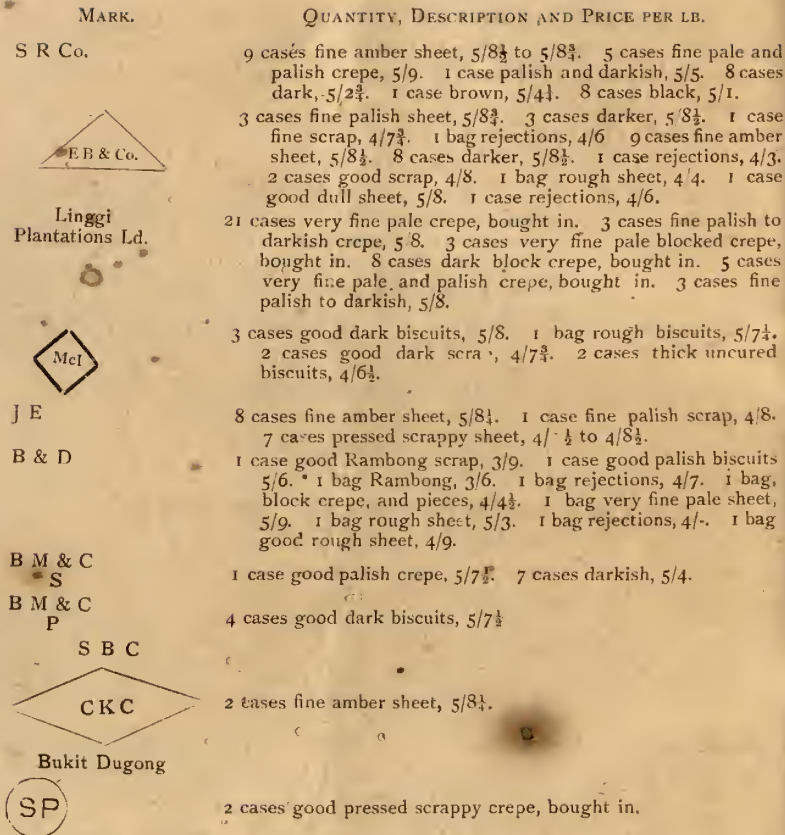 MARK. QUANTITY, DESCRIPTION AND PRICE PER LB.
S R Co. 9 cases fine amber sheet, 5/8½ to 5/8¾. 5 cases fine pale and
palish crepe, 5/9. 1 case palish and darkish, 5/5. 8 cases
dark, 5/2¾. 1 case brown, 5/4¼. 8 cases black, 5/1.
E B & Co. 3 cases fine palish sheet, 5/8¾. 3 cases darker, 5/8½. 1 case
fine scrap, 4/7¾. 1 bag rejections, 4/6 9 cases fine amber
sheet, 5/8½. 8 cases darker, 5/8½. 1 case rejections, 4/3.
2 cases good scrap, 4/8. 1 bag rough sheet, 4/4. 1 case
good dull sheet, 5/8. 1 case rejections, 4/6.
Linggi
Plantations Ld.
21 cases very fine pale crepe, bought in. 3 cases fine palish to
darkish crepe, 5/8. 3 cases very fine pale blocked crepe,
bought in. 8 cases dark block crepe, bought in. 5 cases
very fine pale and palish crepe, bought in. 3 cases fine
palish to darkish, 5/8.
McI 3 cases good dark biscuits, 5/8. 1 bag rough biscuits, 5/7¼.
2 cases good dark 4/7¾. 2 cases thick uncured
biscuits, 4/6½.
J E 8 cases fine amber sheet, 5/8¼. 1 case fine palish scrap, 4/8.
7 cases pressed scrappy sheet, to 4/8½.
B & D 1 case good Rambong scrap, 3/9. 1 case good palish biscuits
5/6. 1 bag Rambong, 3/6. 1 bag rejections, 4/7. 1 bag,
block crepe, and pieces, 4/4½. 1 bag very fine pale sheet,
5/9. 1 bag rough sheet, 5/3. 1 bag rejections, 4/-. 1 bag
good rough sheet, 4/9.
B M & C
S 1 case good palish crepe, 7 cases darkish, 5/4.
B M & C
P 4 cases good dark biscuits, 5/7½
S B C
CKC 2 cases fine amber sheet, 5/8¼.
Bukit Dugong
SP 2 cases good pressed scrappy crepe, bought in.